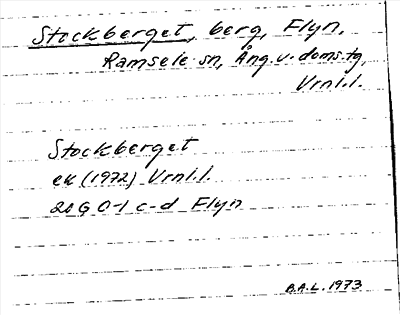 Stockberget, berg, Flyn,
Ramsele sn, Ång.v. doms.tg,
Vrnl.l.
Stockberget
ek (1972) Vrnl.l.
20 G 0-1 c-d Flyn
B.A.L. 1973